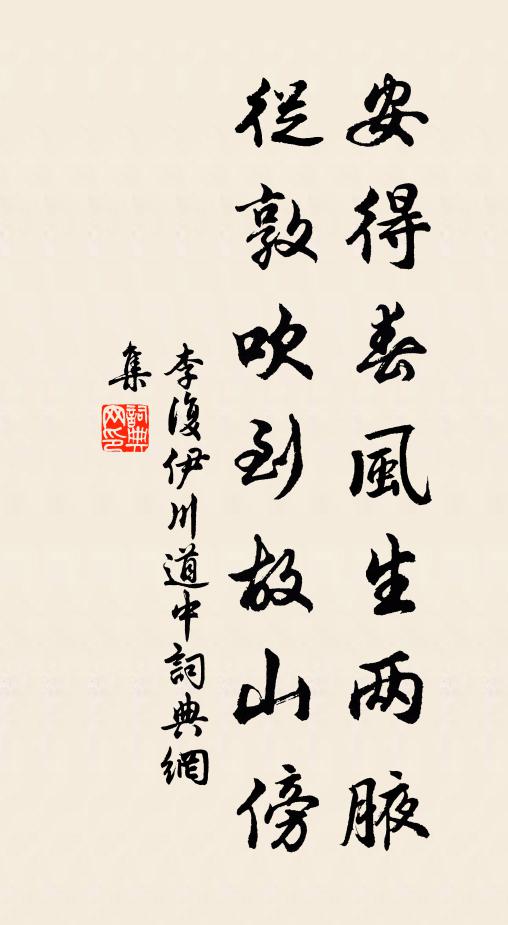 安得春風生两腋
從敦吹到故山傍
李復伊川道中詞典網
集
詞典
网印